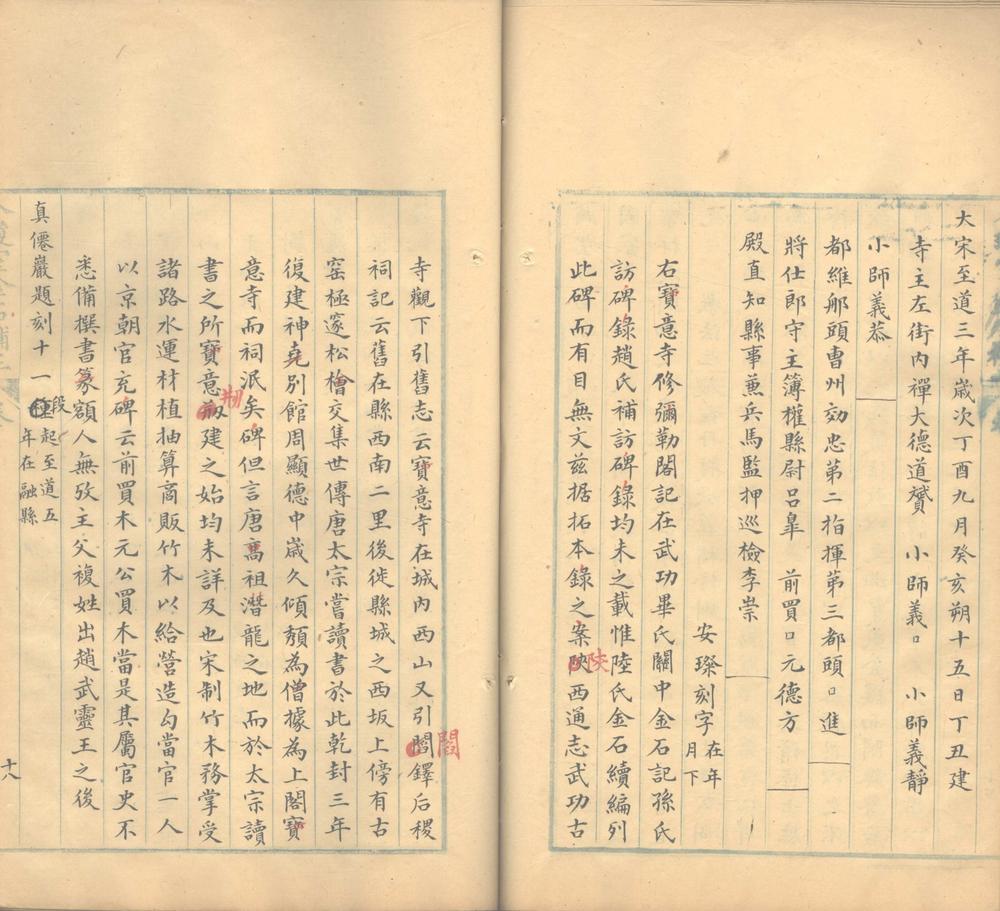 大宋至道三年歲次丁酉九月癸亥朔十五日丁丑建
寺主左街内禪大德道贇 小師義□ 小師義靜
小師義恭
都維那頭曹州効忠第二指揮第三都頭□進
將仕郎守主簿權縣尉吕臯 前買□元德方
殿直知縣事兼兵馬監押巡檢李崇
安璨刻字在年月下
右寶意寺修彌勒閣記在武功畢氏關中金石記孫氏
訪碑錄趙氏補訪碑錄均未之載惟陸氏金石續編列
此碑而有目無文兹据拓本錄之案陝西通志武功古
寺觀下引舊志云寶意寺在城内西山又引閻鐸后稷
祠記云舊在縣西南二里後徙縣城之西坂上傍有古
窑極邃松檜交集世傳唐太宗嘗讀書於此乾封三年
復建神堯別館周顯德中歲久傾頹為僧據為上閣寶
意寺而祠泯矣碑但言唐高祖潛龍之地而於太宗讀
書之所寶意刱建之始均未詳及也宋制竹木務掌受
諸路水運材植抽算商販竹木以給營造勾當官一人
以京朝官充碑云前買木元公買木當是其屬官史不
悉備撰書篆額人無攷主父複姓出趙武靈王之後
真僊巖題刻十一段起至道五年在融縣
十八